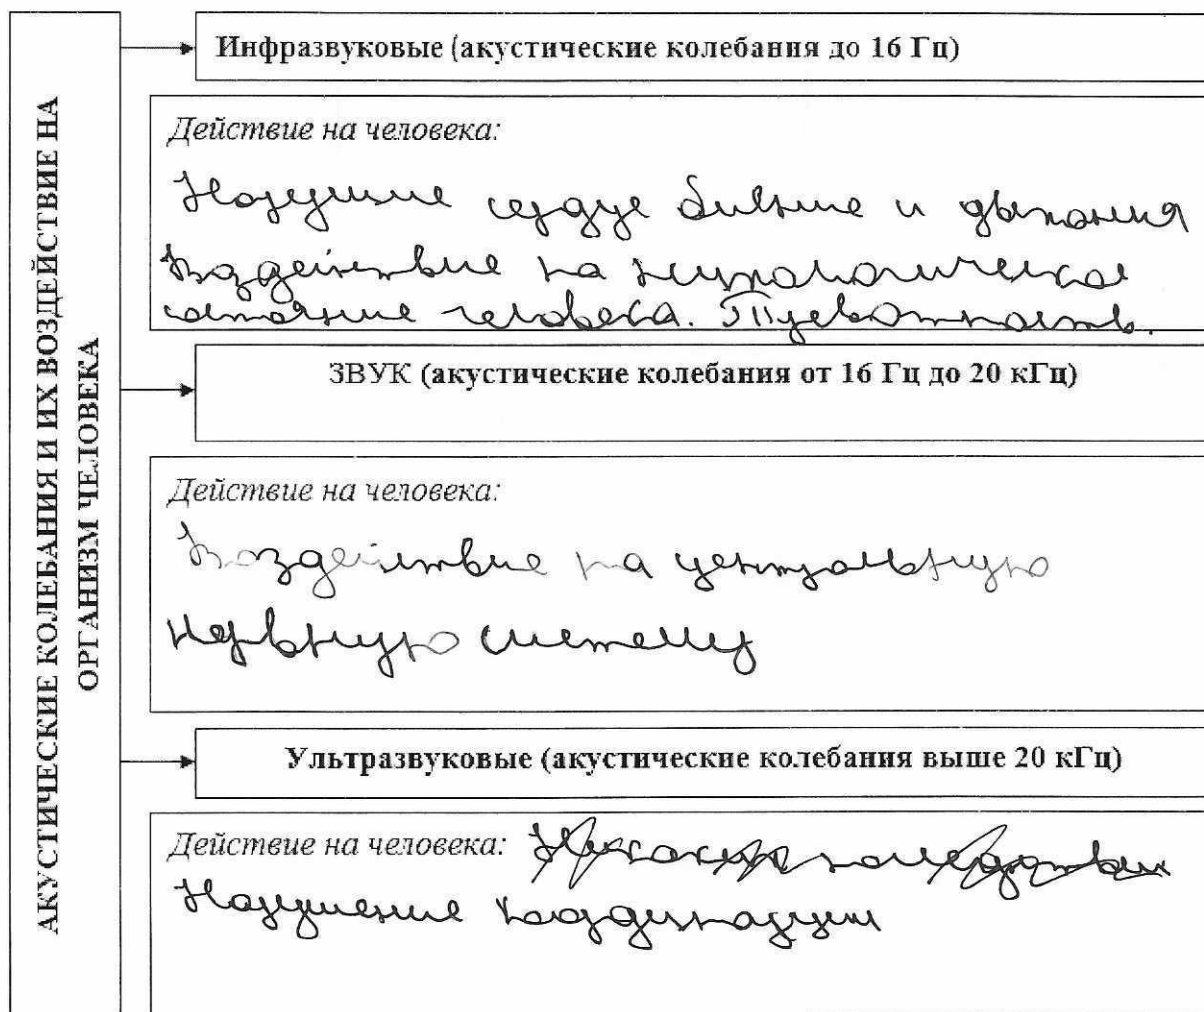 АКУСТИЧЕСКИЕ КОЛЕБАНИЯ И ИХ ВОЗДЕЙСТВИЕ НА
ОРГАНИЗМ ЧЕЛОВЕКА
Инфразвуковые (акустические колебания до 16 Гц)
Действие на человека:
сердце биение и дыхания
Воздействие на
состояние человека. Тревожность.
ЗВУК (акустические колебания от 16 Гц до 20 кГц)
Действие на человека:
Воздействие на центральную
нервную систему
Ультразвуковые (акустические колебания выше 20 кГц)
Действие на человека:
Нарушение координации